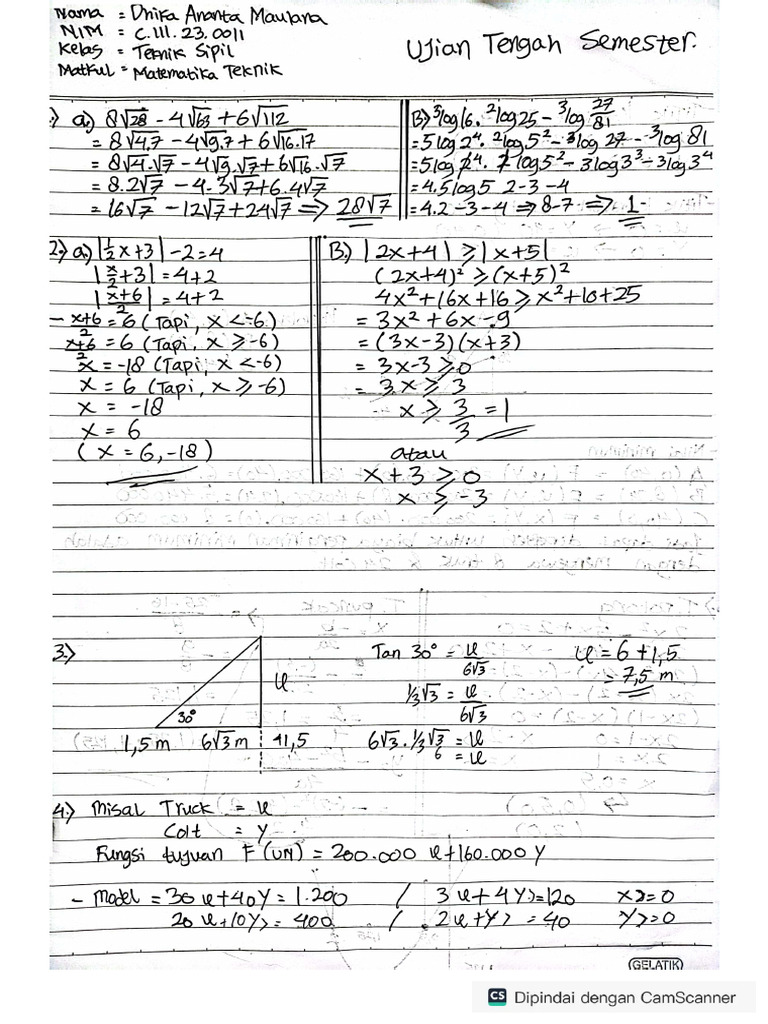 Nama = Dhika Ananta Maulana
NIM = C.111.23.0011
Kelas = Teknik Sipil
Matkul = Matematika Teknik
Ujian Tengah Semester.
a.) 8√28 - 4√63 + 6√112
= 8√4.7 - 4√9.7 + 6√16.17
= 8√4.√7 - 4√9.√7 + 6√16.√7
= 8.2√7 - 4.3√7 + 6.4√7
= 16√7 - 12√7 + 24√7 => 28√7
B> ³log 16. ²log 25 - ³log 27/81
= 5 log 2⁴. ²log 5² - 3log 27 - ³log 81
= 5log 2⁴. 2log 5² - 3log 3³ - 3log 3⁴
= 4.5log 5 2-3-4
= 4.2-3-4 => 8-7 => 1
2.) a.) |½x+3| -2=4
|x/2+3| = 4+2
|x+6/2| = 4+2
- x+6/2 = 6 (Tapi, x < -6)
x+6/2 = 6 (Tapi, x ≥ -6)
x = -18 (Tapi, x < -6)
x = 6 (Tapi, x ≥ -6)
x = -18
x = 6
(x = 6, -18)
B.) |2x+4| ≥ |x+5|
(2x+4)² ≥ (x+5)²
4x²+16x+16 ≥ x²+10+25
= 3x² + 6x - 9
= (3x-3)(x+3)
= 3x-3 ≥ 0
= 3x ≥ 3
x ≥ 3/3 = 1
atau
x + 3 ≥ 0
x ≥ -3
3.)
30°
u
1,5 m 6√3 m 41,5
Tan 30° = u/6√3
⅓√3 = u/6√3
6√3. ⅓√3 = u
6 = u
u = 6 + 1,5
= 7,5 m
4.) Misal Truck = u
Colt = y
Fungsi tujuan F (UM) = 200.000 u + 160.000 y
- Model = 30 u + 40 y = 1.200 / 3 u + 4 y >= 120 x >= 0
20 u + 10 y >= 400 / 2 u + y >= 40 y >= 0
GELATIK
CS Dipindai dengan CamScanner